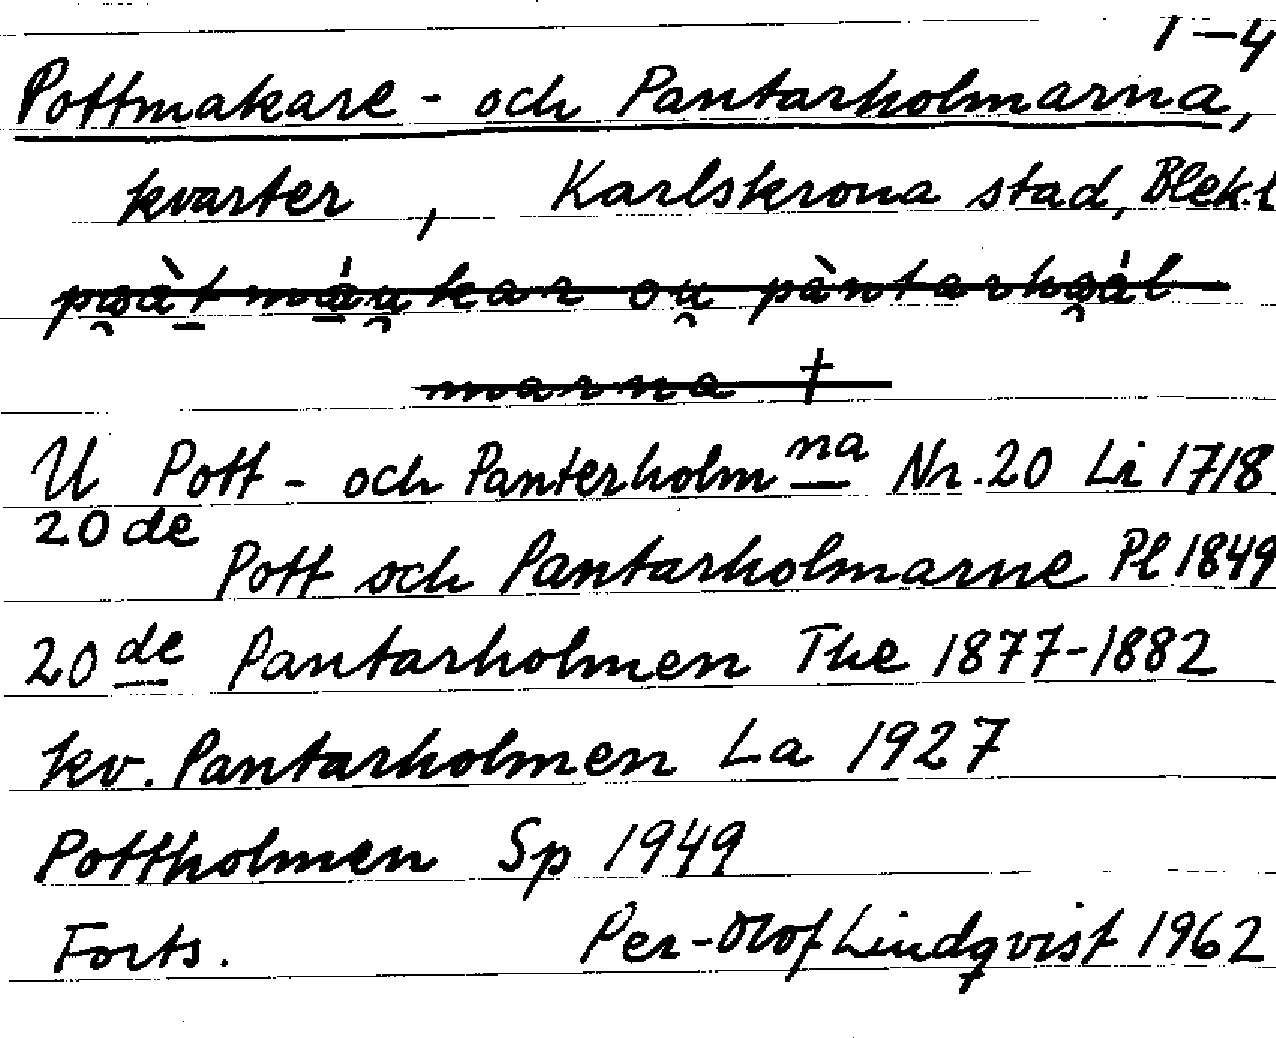 1-4
Pottmakare- och Pantarholmarna,
kvarter, Karlskrona stad, Blek.l
marna †
U Pott- och Panterholm na Nr.20 Li 1718
20 de
Pott och Pantarholmarne Pl 1849
20 de Pantarholmen The 1877-1882
kv. Pantarholmen La 1927
Pottholmen Sp 1949
Forts. Per-Olof Lindqvist 1962